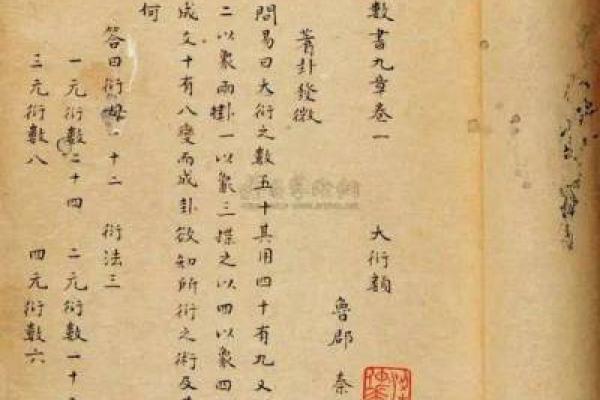 數書九章卷一
大衍類
魯郡 秦
蓍卦發微
問易曰大衍之數五十其用四十有九又
二以象兩掛一以象三揲之以四以象四
成爻十有八變而成卦欲知所衍之術及
何
答曰衍母一十二 衍法三
一元衍數二十四 二元衍數一十二
三元衍數八 四元衍數六